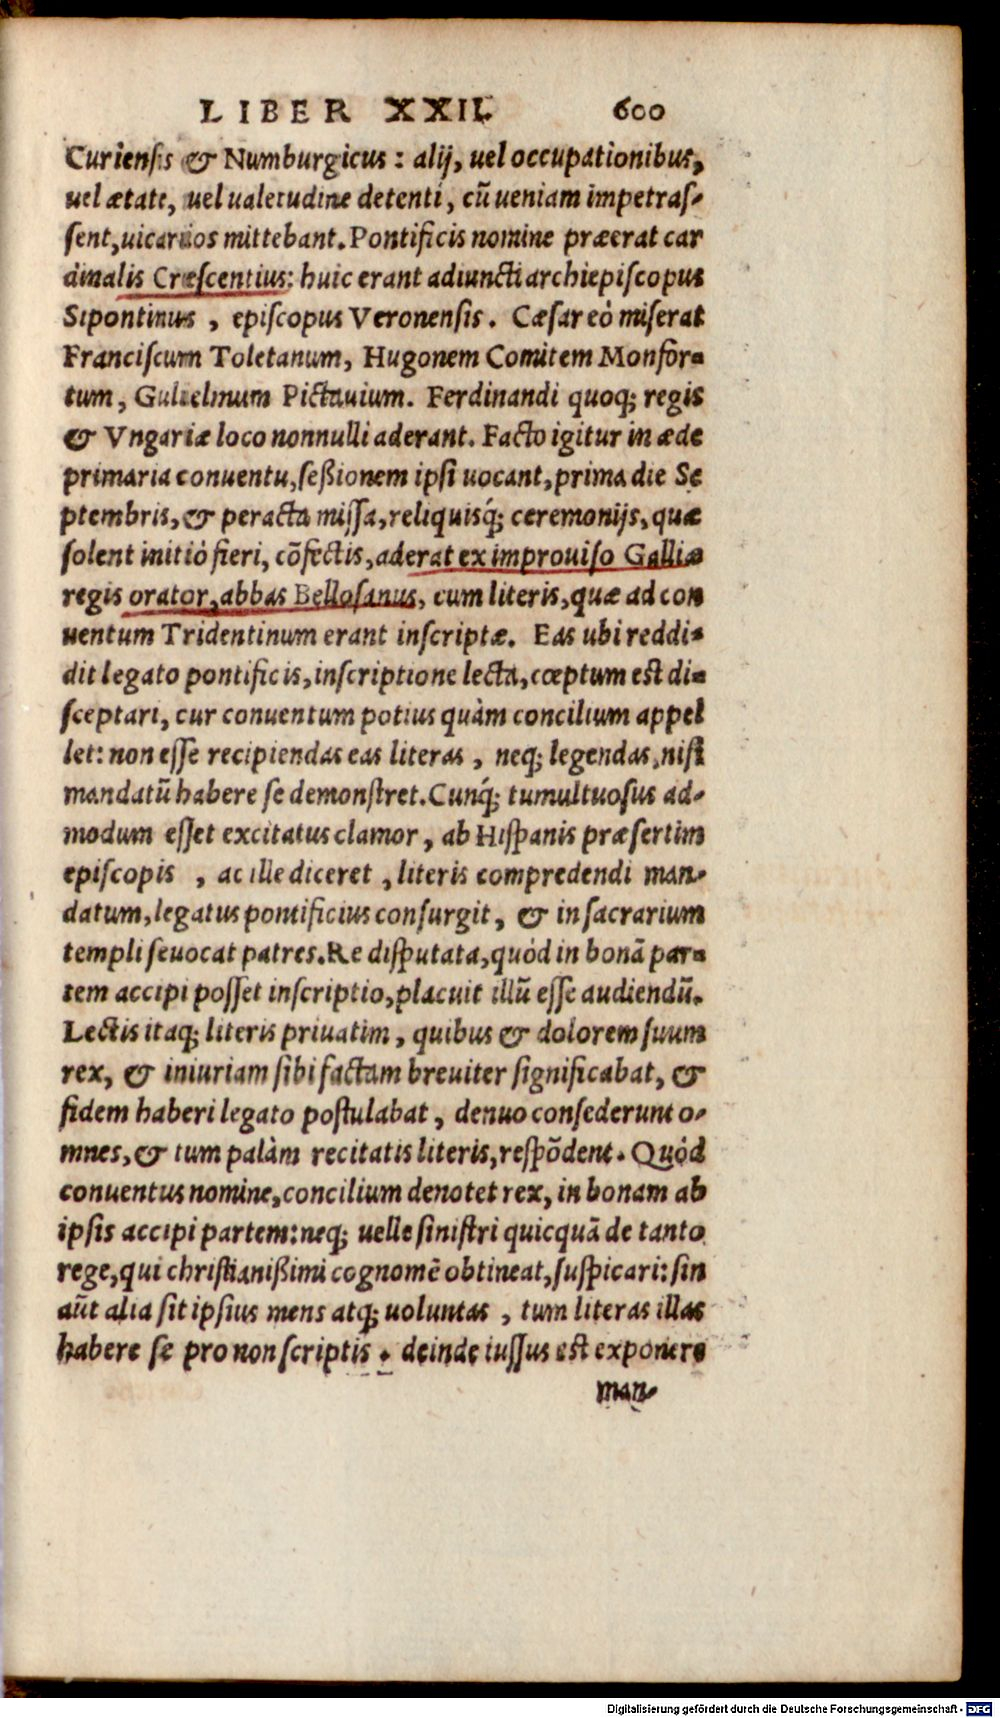 LIBER XXII. 600
Curiensis & Numburgicus : alij, uel occupationibus,
uel ætate, uel ualetudine detenti, cũ ueniam impetras-
sent, uicarios mittebant. Pontificis nomine præerat car
dinalis Crescentius: huic erant adiuncti archiepiscopus
Sipontinus , episcopus Veronensis. Cæsar eò miserat
Franciscum Toletanum, Hugonem Comitem Monfor-
tum, Gulielmum Pictauium. Ferdinandi quoq; regis
& Vngariæ loco nonnulli aderant. Facto igitur in æde
primaria conuentu, seßionem ipsi uocant, prima die Se
ptembris, & peracta missa, reliquisq́; ceremonijs, quæ
solent initiò fieri, cõfectis, aderat ex improuiso Galliæ
regis orator, abbas Bellosanus, cum literis, quæ ad con
uentum Tridentinum erant inscriptæ. Eas ubi reddi-
dit legato pontificis, inscriptione lecta, cœptum est di-
sceptari, cur conuentum potius quàm concilium appel
let: non esse recipiendas eas literas , neq; legendas, nisi
mandatũ habere se demonstret. Cunq́; tumultuosus ad-
modum esset excitatus clamor, ab Hispanis præsertim
episcopis , ac ille diceret , literis compredendi man-
datum, legatus pontificius consurgit, & in sacrarium
templi seuocat patres. Re disputata, quòd in bonã par-
tem accipi posset inscriptio, placuit illũ esse audiendũ.
Lectis itaq; literis priuatim, quibus & dolorem suum
rex, & iniuriam sibi factam breuiter significabat, &
fidem haberi legato postulabat, denuo consederunt o-
mnes, & tum palàm recitatis literis, respõdent. Quòd
conuentus nomine, concilium denotet rex, in bonam ab
ipsis accipi partem: neq; uelle sinistri quicquã de tanto
rege, qui christianißimi cognomẽ obtineat, suspicari: sin
aũt alia sit ipsius mens atq; uoluntas , tum literas illas
habere se pro non scriptis . deinde iussus est exponere
man-
Digitalisierung gefördert durch die Deutsche Forschungsgemeinschaft - DFG